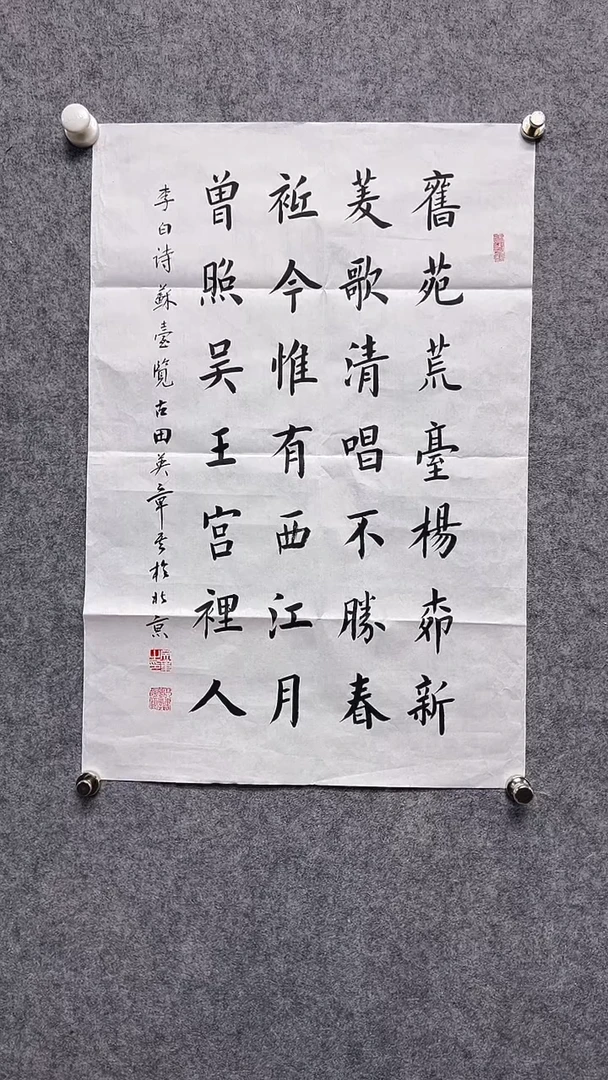 舊苑荒臺楊桺新
菱歌清唱不勝春
祗今惟有西江月
曾照吴王宫裡人
李白诗蘇臺覽古田英章书於北京